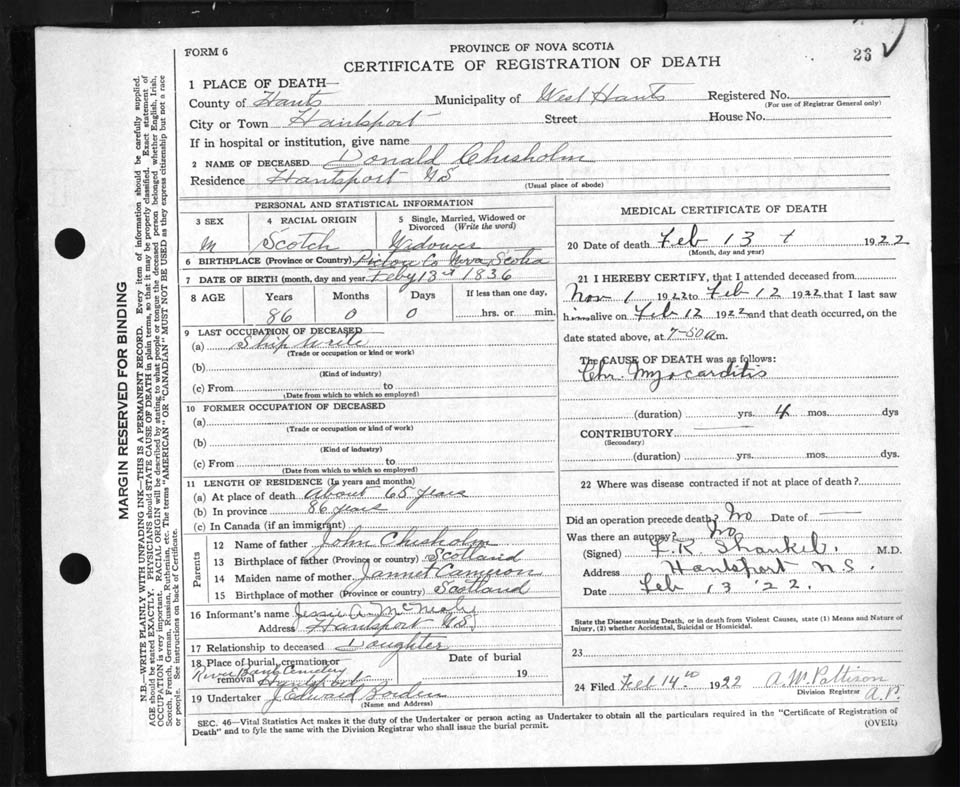 FORM 6
PROVINCE OF NOVA SCOTIA
CERTIFICATE OF REGISTRATION OF DEATH
26
1 PLACE OF DEATH—
County of Hants Municipality of West Hants Registered No.
(For use of Registrar General only)
City or Town Hantsport Street House No.
If in hospital or institution, give name
2 NAME OF DECEASED Donald Chisholm
Residence Hantsport NS
(Usual place of abode)
PERSONAL AND STATISTICAL INFORMATION
3 SEX 4 RACIAL ORIGIN 5 Single, Married, Widowed or Divorced (Write the word)
M Scotch Widower
6 BIRTHPLACE (Province or Country) Pictou Co Nova Scotia
7 DATE OF BIRTH (month, day and year) Feby 13 1836
8 AGE Years Months Days If less than one day,
86 0 0 hrs. or min.
9 LAST OCCUPATION OF DECEASED
(a) Ship write
(Trade or occupation or kind or work)
(b)
(Kind of industry)
(c) From to
(Date from which to which so employed)
10 FORMER OCCUPATION OF DECEASED
(a)
(Trade or occupation or kind of work)
(b)
(Kind of industry)
(c) From to
(Date from which to which so employed)
11 LENGTH OF RESIDENCE (In years and months)
(a) At place of death About 65 years
(b) In province 86 years
(c) In Canada (if an immigrant)
Parents
12 Name of father John Chisholm
13 Birthplace of father (Province or country) Scotland
14 Maiden name of mother Jannet Cameron
15 Birthplace of mother (Province or country) Scotland
16 Informant's name Jessie A.
Address Hantsport NS
17 Relationship to deceased Daughter
18 Place of burial, cremation or removal Date of burial
River Bank Cemetery
Hantsport 19
19 Undertaker J Edward Borden
(Name and Address)
MEDICAL CERTIFICATE OF DEATH
20 Date of death Feb 13 1922
(Month, day and year)
21 I HEREBY CERTIFY, that I attended deceased from
Nov 1 1922 to Feb 12 1922 that I last saw
him alive on Feb 12 1922 and that death occurred, on
date stated above, at 7-50 a m.
The CAUSE OF DEATH was as follows:
Chr. Myocarditis
(duration) yrs. 4 mos. dys
CONTRIBUTORY
(Secondary)
(duration) yrs. mos. dys.
22 Where was disease contracted if not at place of death?
Did an operation precede death? No Date of —
Was there an autopsy? No
(Signed) M.D.
Address Hantsport N.S.
Date Feb 13 '22.
State the Disease causing Death, or in death from Violent Causes, state (1) Means and Nature of
Injury, (2) whether Accidental, Suicidal or Homicidal.
23
24 Filed Feb 14th 1922 A. W. Pattison
Division Registrar
SEC. 46—Vital Statistics Act makes it the duty of the Undertaker or person acting as Undertaker to obtain all the particulars required in the "Certificate of Registration of
Death" and to fyle the same with the Division Registrar who shall issue the burial permit.
(OVER)
MARGIN RESERVED FOR BINDING
N.B.—WRITE PLAINLY WITH UNFADING INK—THIS IS A PERMANENT RECORD. Every item of information should be carefully supplied.
AGE should be stated EXACTLY. PHYSICIANS should STATE CAUSE OF DEATH in plain terms, so that it may be properly classified. Exact statement of
OCCUPATION is very important. RACIAL ORIGIN will be described by stating to what people or tongue the deceased person belonged whether English, Irish,
Scotch, French, German, Russian, Ruthenian, etc. The terms "AMERICAN" OR "CANADIAN" MUST NOT BE USED as they express citizenship but not a race
or people. See instructions on back of Certificate.